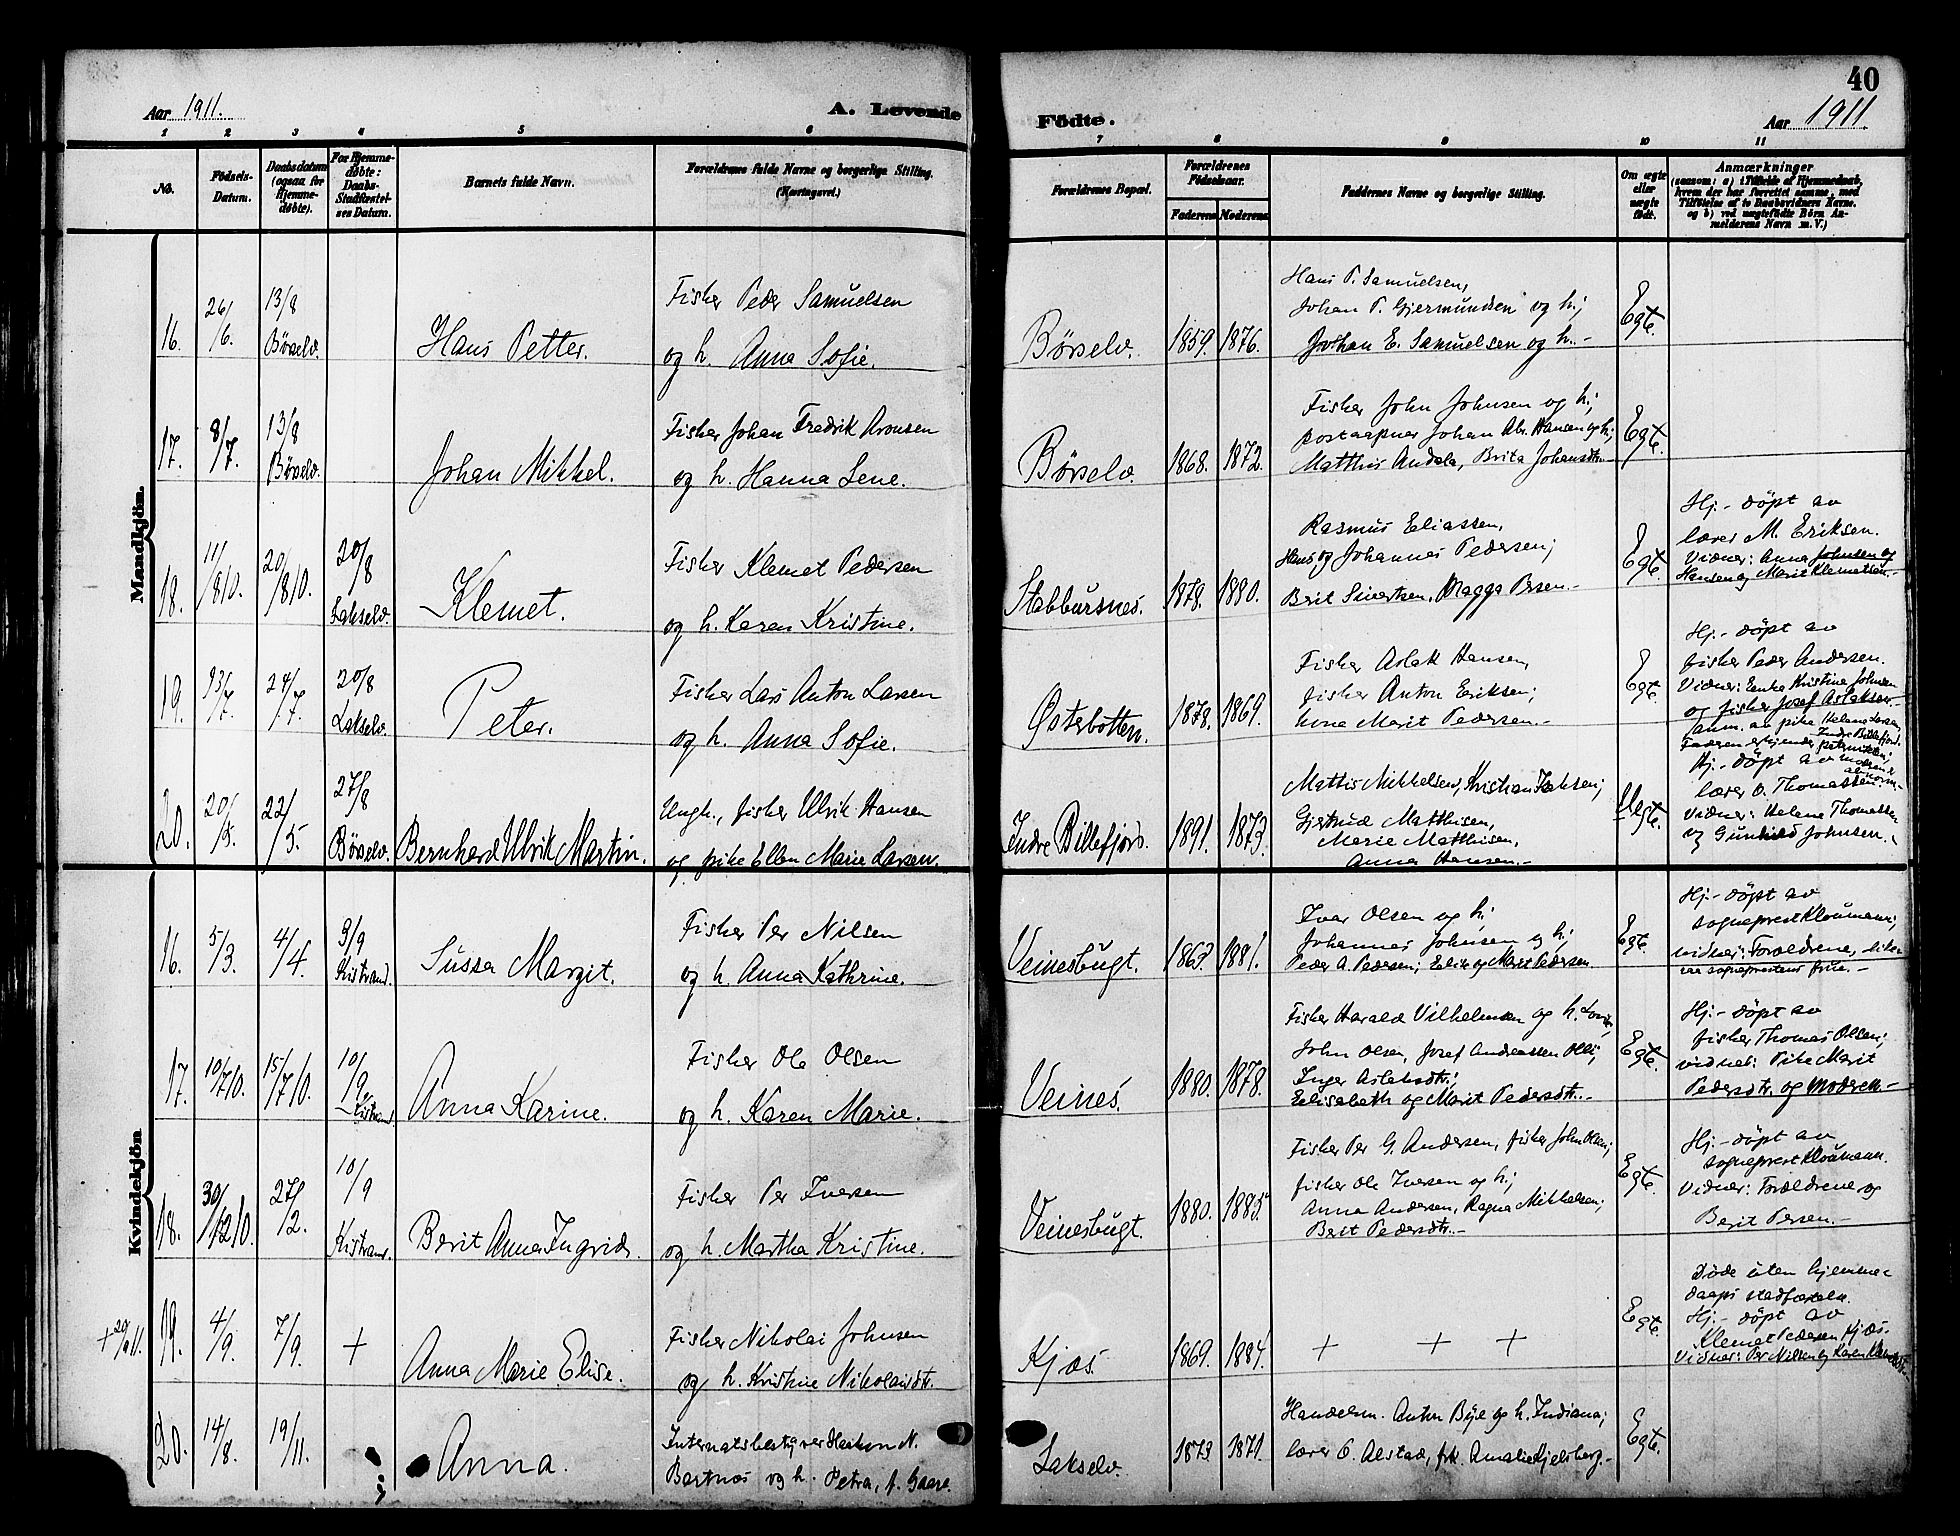 40
Aar 1911.
A. Levende
Födte.
Aar 1911
1 2 3 4 5 6 7 8 9 10 11
No.
Födsels-
Datum.
Daabsdatum
(ogsaa for
Hjemme-
døbte).
For Hjemme-
døbte:
Daabs-
Stadfæstel-
ses Datum.
Barnets fulde Navn.
Forældrenes fulde Navne og borgerlige Stilling.
Forældrenes Bopæl.
Forældrenes
Födselsaar.
Faderens Moderens
Faddernes Navne og borgerlige Stilling.
Om ægte
eller
uægte
født.
Anmærkninger
(saasom: a) i Tilfælde af Hjemmedaab,
hvem der har forrettet samme, med
Tilføielse af to Daabsvidners Navne,
og b) ved uægtefödte Börn An-
melderens Navn m. V.)
Mandkjön.
16. 26/6. 13/8 Børselv. Hans Petter.
Fisker Peder Samuelsen
og h. Anna Sofie.
Børselv. 1859. 1876.
Hans P. Samuelsen,
Johan P. Gjermundsen og h.;
Johan E. Samuelsen og h.-
Egte.
17. 8/7. 13/8 Børselv. Johan Mikkel.
Fisker Johan Fredrik Aronsen
og h. Hanna Lene.
Børselv. 1868. 1872.
Fisker John Johnsen og h.;
postaapner Johan Abr. Hansen og h.;
Matthis Andala, Brita Johansdtr.-
Egte.
18. 11/810. 20/810. 20/8 Lakselv. Klemet.
Fisker Klemet Pedersen
og h. Karen Kristine.
Stabbursnes. 1878. 1880.
Rasmus Eliassen,
Hans og Johannes Pedersen;
Berit Sivertsen, Magga Persen.-
Egte.
Hj.- döpt av
lærer M. Eriksen.
Vidner: Anna Johnsen og
Hansen og Marit Klemetsen.-
19. 23/7. 24/7. 20/8 Lakselv. Peter.
Fisker Lars Anton Larsen
og h. Anna Sofie.
Østerbotten. 1878. 1869.
Fisker Aslak Hansen,
fisker Anton Eriksen;
kone Marit Pedersen.-
Egte.
Hj.- döpt av
fisker Peder Andersen.
Vidner: Enke Kristine Johnsen
og fisker Josef Aslaksen.-
20. 20/5. 22/5. 27/8 Børselv. Bernhard Ulrik Martin.
Ungk., fisker Ulrik Hansen
og pike Ellen Marie Larsen.
Indre Billefjord. 1891. 1873.
Mattis Mikkelsen, Kristian Isaksen;
Gjertrud Matthisen,
Marie Matthisen,
Anna Hansen.-
Uegte.
Anm. av pike Helene Larsen,
Indre Billefjord.
Hj.- döpt av
lærer O. Thomassen.
Vidner: Helene Thomassen
og Gunhild Johnsen.
Kvindekjön
16. 5/3. 4/4. 9/9 Kistrand. Sussa Margit.
Fisker Per Nilsen
og h. Anna Kathrine.
Veinesbugt. 1863. 1881.
Ivar Olsen og h.;
Johannes Johnsen og h.;
Peder A. Pedersen; Elen og Marit Pedersen.
Egte.
Hj.- döpt av
sogneprest Kloumann;
vidner: Forældrene, like-
saa sogneprestens frue.-
17. 10/710. 15/710. 10/9 Kistrand Anna Karine.
Fisker Ole Olsen
og h. Karen Marie.
Veines. 1880. 1878.
Fisker Harald Vilhelmsen og h. Lovise,
John Olsen, Josef Andreassen Olli;
Inger Aslaksdtr.;
Elisabeth og Marit Pedersdtr.-
Egte.
Hj.- döpt av
fisker Thomas Olsen;
vidner: Pike Marit
Pedersdtr. og Moderen.-
18. 30/1210. 27/2. 10/9 Kistrand. Berit Anna Ingrid.
Fisker Per Iversen
og h. Martha Kristine.
Veinesbugt. 1880. 1885.
Fisker Per G. Andersen, fisker John Olsen;
fisker Ole Iversen og h.;
Anna Andersen, Ragna Mikkelsen;
Berit Pedersdtr.-
Egte.
Hj.- döpt av
sogneprest Kloumann.
Vidner: Forældrene og
Berit Persen.-
+ 20/911.
19. 4/9. 7/9. + Anna Marie Elise.
Fisker Nikolai Johnsen
og h. Kristine Nikolaisdtr.
Kjæs. 1869. 1884.
+ + +
Egte.
Döde uten hjemme-
daaps stadfæsteln.
Hj.- döpt av
Klemet Pedersen Kjæs.
Vidner: Per Nilsen og Karen
20. 14/8. 19/11. Anna.
Internatsbestyrer Haakon N.
Bartnes og h. Petra, f. Gaare.
Lakselv. 1873 1871.
Handelsm. Anton Bye og h. Indiana;
lærer O. Alstad, frk. Amalie Kjelsberg.-
Egte.